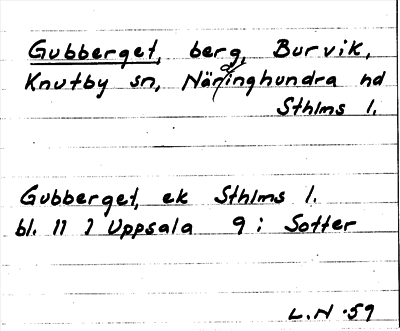 Gubberget, berg, Burvik,
Knutby sn, Närdinghundra hd
Sthlms l.
Gubberget, ek Sthlms l.
bl. 11 J Uppsala 9 i Sotter
L.N. 59